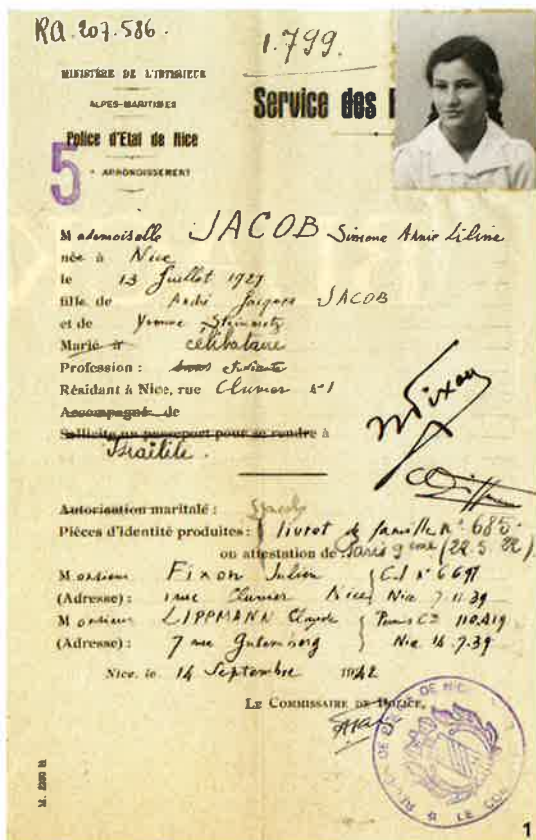 RA. 207.586.
1.799.
MINISTÈRE DE L'INTÉRIEUR
ALPES-MARITIMES
Police d'Etat de Nice
5
ARRONDISSEMENT
Service des
Mademoiselle JACOB Simone Annie Liline
née à Nice
le 13 Juillet 1927
fille de André Jacques JACOB
et de Yvonne Steinmetz
Marié à célibataire
Profession : étudiante
Résidant à Nice, rue Cluvier n° 1
Accompagné de
Sollicite un passeport pour se rendre à
Israélite.
Autorisation maritale :
Pièces d'identité produites : livret de famille n° 685
ou attestation de : Paris 9ème (22.5.22)
Monsieur Fixon Julien C.I n° 6697
(Adresse) : 1 rue Cluvier Nice Nice 7.11.39
Monsieur LIPPMANN Claude Permis CD 110.419
(Adresse) : 7 rue Gutemberg Nice 14.7.39
Nice, le 14 Septembre 1942
LE COMMISSAIRE DE POLICE,
M. 2280 B
1